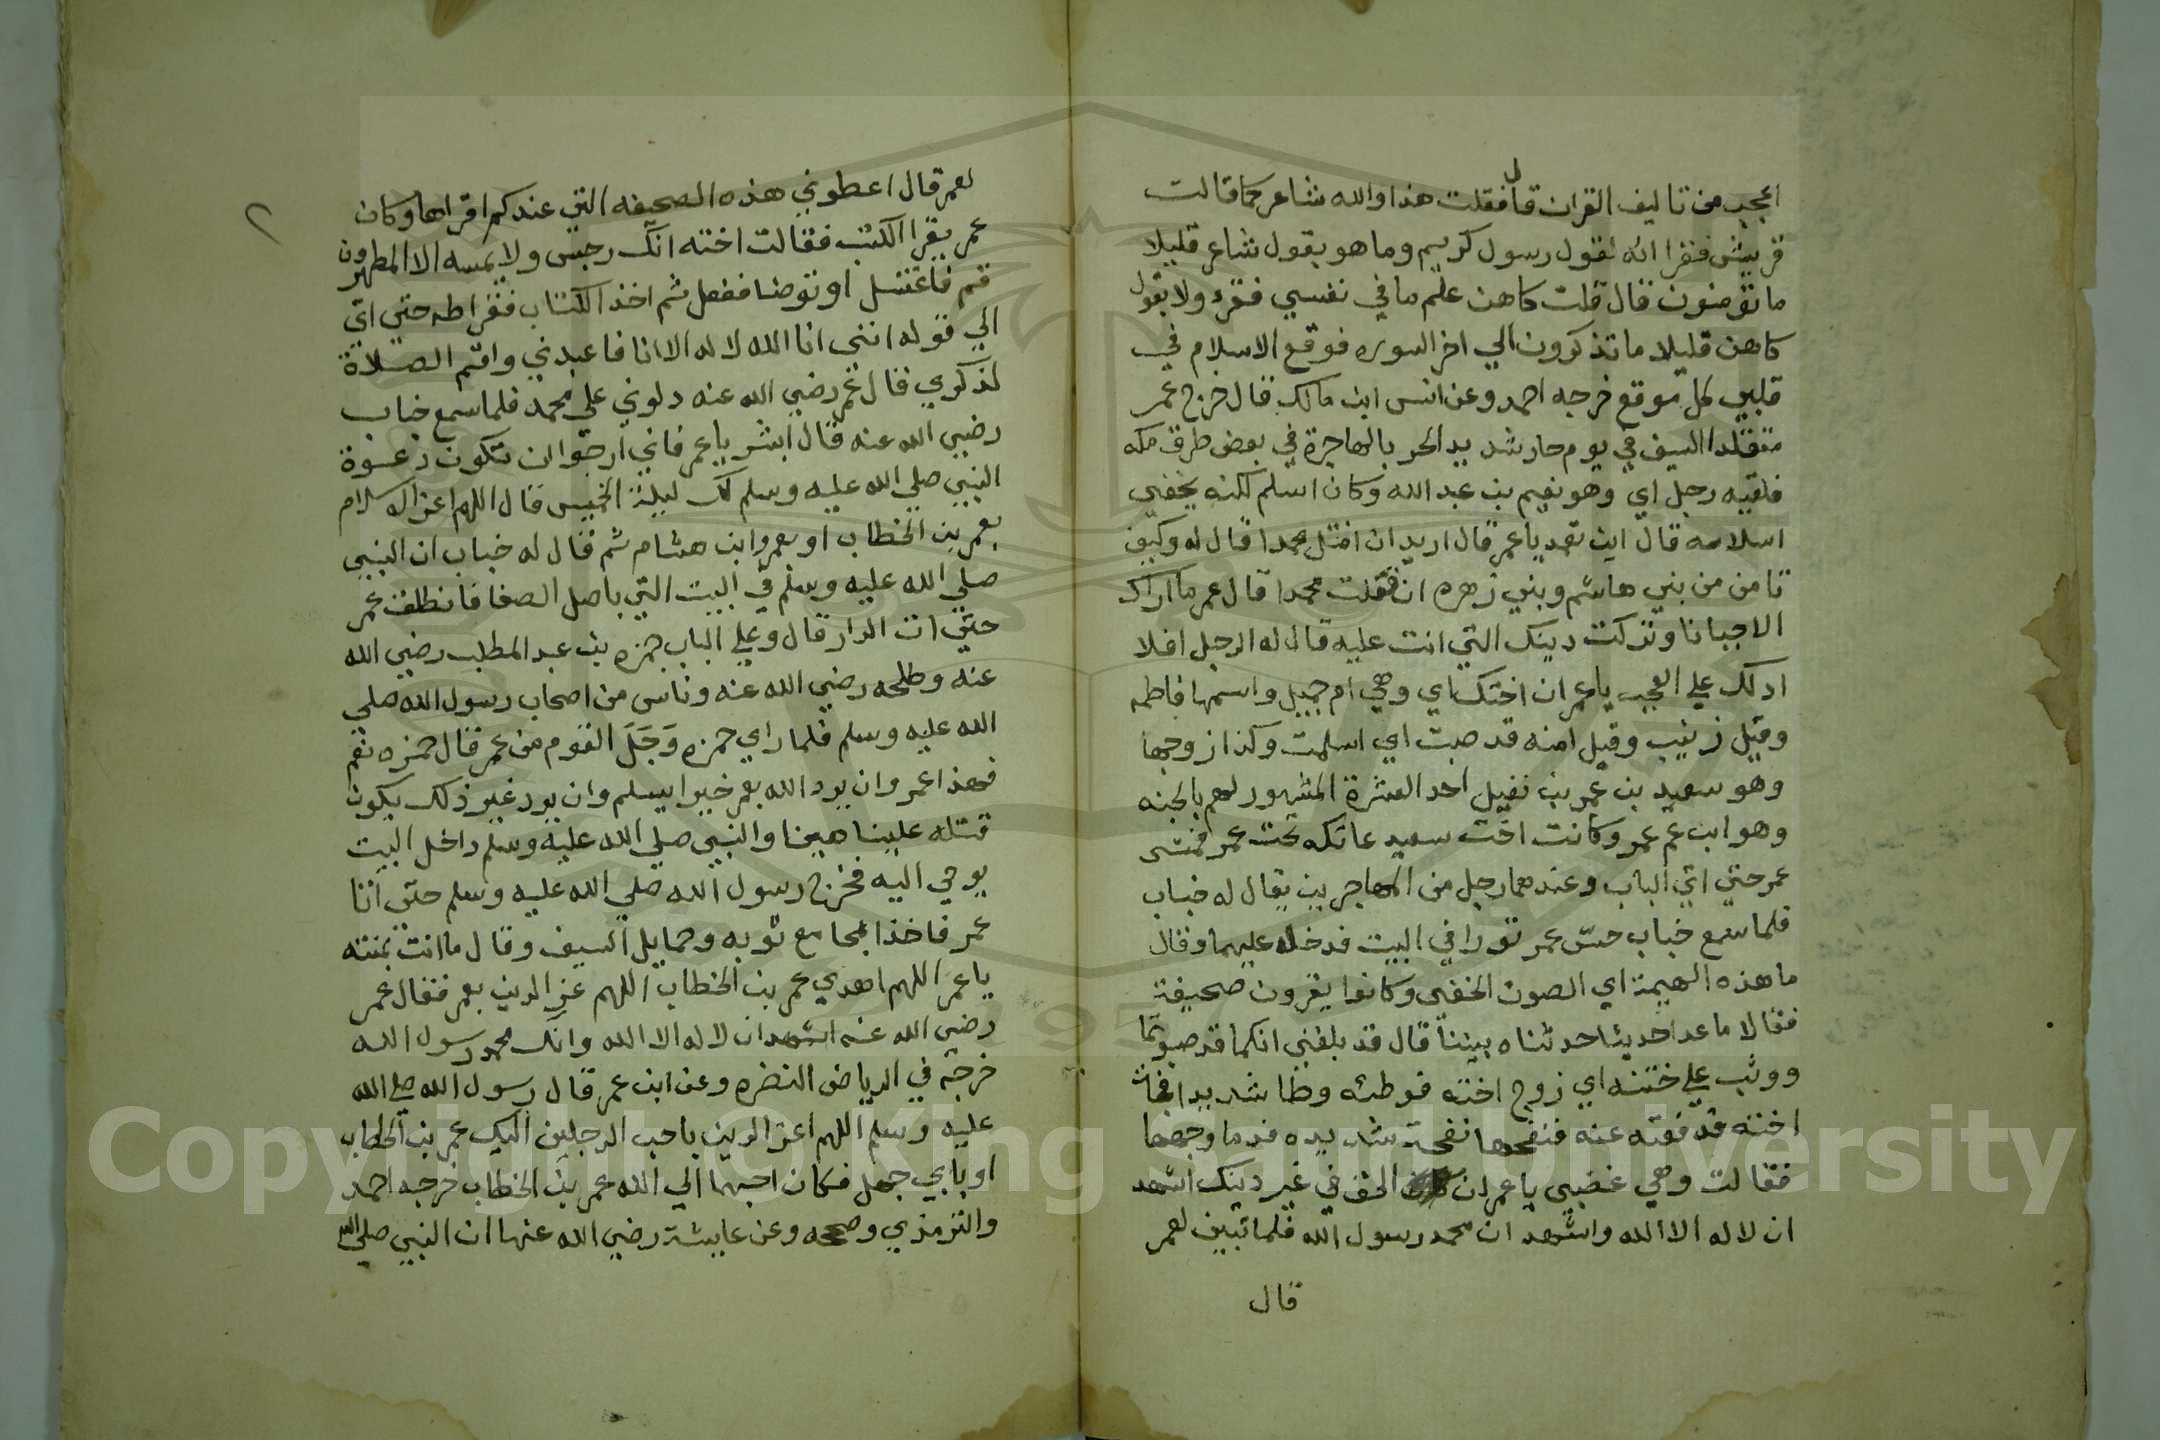 اعجب من تاليف القران قال فقلت هذا والله شاعر كما قالت
قريش فقرا انه لقول رسول كريم وما هو بقول شاعر قليلا
ما تؤمنون قال قلت كاهن علم ما في نفسي فقرء ولا بقول
كاهن قليلا ما تذكرون الي اخر السوره فوقع الاسلام في
قلبي كل موقع خرجه احمد وعن انس ابن مالك قال خرج عمر
متقلدا السيف في يوم حار شديد الحر بالهاجرة في بعض طرق مكه
فلقيه رجل اي وهو نعيم بن عبد الله وكان اسلم لكنه يخفي
اسلامه قال اين تعمد يا عمر قال اريد ان اقتل محمدا قال له وكيف
تامن من بني هاشم وبني زهره ان قتلت محمدا قال عمر ما اراك
الا جبانا وتركت دينك التي انت عليه قال له الرجل افلا
ادلك علي العجب يا عمر ان اختك اي وهي ام جميل واسمها فاطمه
وقيل زينب وقيل امنه قد صبت اي اسلمت وكذا زوجها
وهو سعيد بن عمر بن نفيل احد العشرة المشهور لهم بالجنه
وهو ابن عم عمر وكانت اخت سعيد عاتكه تحت عمر فمشى
عمر حتي اتي الباب وعندهما رجل من المهاجرين يقال له خباب
فلما سمع خباب حسّ عمر تورا في البيت فدخل عليهما وقال
ما هذه الهيمنة اي الصوت الخفى وكانوا يقرون صحيفة
فقالا ما عدا حديثا حدثناه بيننا قال قد بلغني انكما قد صبوتما
ووثب علي ختنه اي زوج اخته فوطئه وطا شديدا فجات
اخته فدفعته عنه فنفحها نفحة شديده فدما وجهها
فقالت وهي غضبي يا عمر ان الحق في غير دينك اشهد
ان لا له الا الله واشهد ان محمد رسول الله فلما تبين لعمر
قال
٢
لعمر قال اعطوني هذه الصحيفه التي عندكم اقراها وكان
عمر يقرا الكتب فقالت اخته انك رجس ولا يمسه الا المطهرون
قم فاغتسل او توضا ففعل ثم اخذ الكتاب فقرا طه حتي اتي
الي قوله انني انا الله لا له الا انا فاعبدني واقم الصلاة
لذكري فقال عمر رضي الله عنه دلوني علي محمد فلما سمع خباب
رضي الله عنه قال ابشر يا عمر فاني ارجوا ان تكون دعوة
النبي صلي الله عليه وسلم لك ليلة الخميس قال اللهم اعز الاسلام
بعمر بن الخطاب او بعمرو ابن هشام ثم قال له خباب ان النبي
صلي الله عليه وسلم في البيت التي باصل الصفا فانطلق عمر
حتي ات الدار قال وعلي الباب حمزه بن عبد المطلب رضي الله
عنه وطلحه رضي الله عنه وناس من اصحاب رسول الله صلي
الله عليه وسلم فلما راي حمزه وَجَلَ القوم من عمر قال حمزه نعم
فهذا عمر وان يرد الله بعمر خيرا يسلم وان يرد غير ذلك يكون
قتله علينا هينا والنبي صلي الله عليه وسلم داخل البيت
يوحي اليه فخرج رسول الله صلي الله عليه وسلم حتي اتا
عمر فاخذا بمجامع ثوبه وحمايل السيف وقال ما انت بمنته
يا عمر اللهم اهدي عمر بن الخطاب اللهم عز الدين بعمر فقال عمر
رضي الله عنه اشهد ان لا له الا الله وانك محمد رسول الله
خرجه في الرياض النضره وعن ابن عمر قال رسول الله صلي الله
عليه وسلم اللهم اعز الدين باحب الرجلين اليك عمر بن الخطاب
او بابي جهل فكان احبهما الي الله عمر بن الخطاب خرجه احمد
والترمذي وصححه وعن عايشة رضي الله عنها ان النبي صلي الله
Copyright © King Saud University